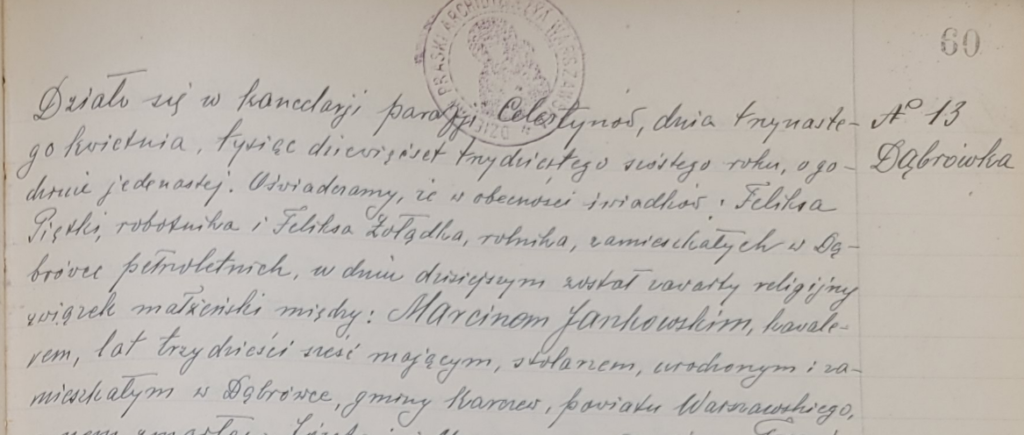 60
Działo się w kancelarji parafji Celestynów, dnia trzynaste-
go kwietnia, tysiąc dziewięćset trzydziestego szóstego roku, o go-
dzinie jedenastej. Oświadczamy, że w obecności świadków: Feliksa
Piętki, robotnika i Feliksa Żołądka, rolnika, zamieszkałych w Dą-
brówce pełnoletnich, w dniu dzisiejszym został zawarty religijny
związek małżeński między: Marcinem Jankowskim, kawale-
rem, lat trzydzieści sześć mającym, stolarzem, urodzonym i za-
mieszkałym w Dąbrówce, gminy Karczew, powiatu Warszawskiego,
No 13
Dąbrówka